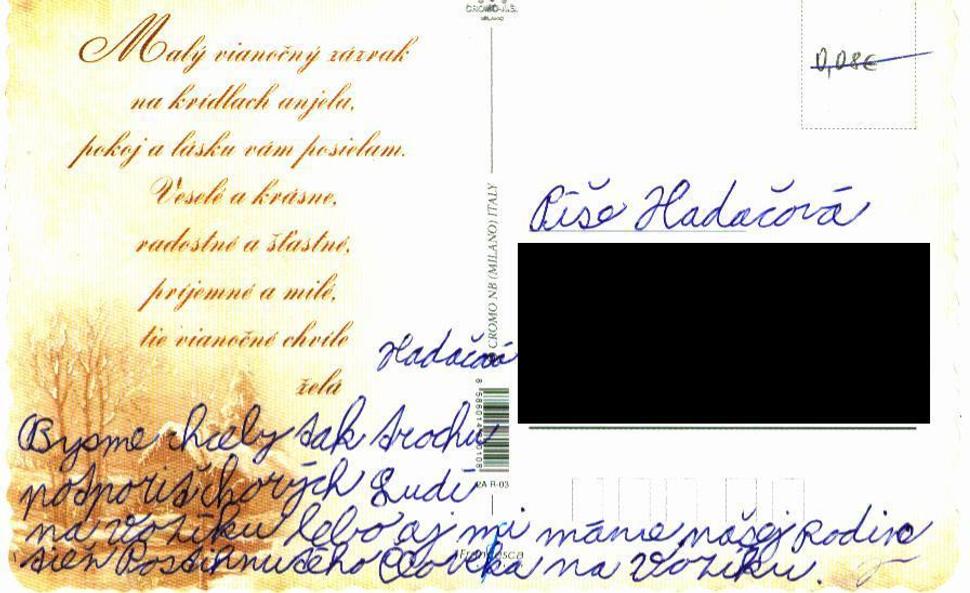 CROMO N.B.
MILANO
Malý vianočný zázrak
na krídlach anjela,
pokoj a lásku vám posielam.
Veselé a krásne,
radostné a šťastné,
príjemné a milé,
tie vianočné chvíle
želá
Hadačová
Bysme chcely tak trochu
potporiť chorých Ludí
na vozíku lebo aj mi máme našej Rodine
tiež Postihnutého Človeka na Vozíku.
© CROMO NB (MILANO) ITALY
2A R-03
Francesca
0,08€
Píše Hadačová